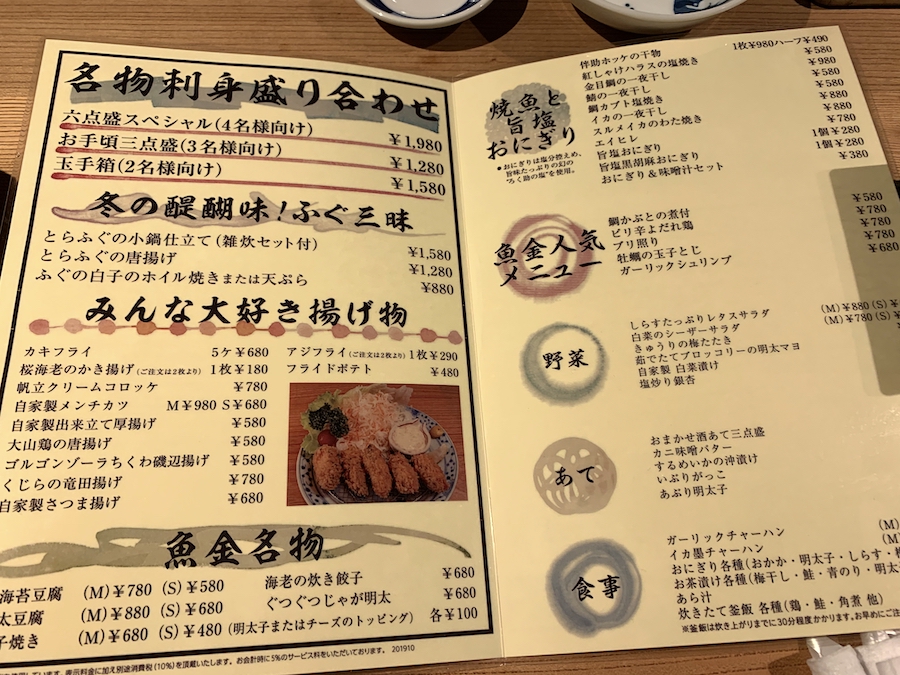 名物刺身盛り合わせ
六点盛スペシャル(4名様向け) ¥1,980
お手頃三点盛(3名様向け) ¥1,280
玉手箱(2名様向け) ¥1,580
冬の醍醐味!ふぐ三昧
とらふぐの小鍋仕立て(雑炊セット付) ¥1,580
とらふぐの唐揚げ ¥1,280
ふぐの白子のホイル焼きまたは天ぷら ¥880
みんな大好き揚げ物
カキフライ 5ケ¥680
桜海老のかき揚げ(ご注文は2枚より) 1枚¥180
帆立クリームコロッケ ¥780
自家製メンチカツ M¥980 S¥680
自家製出来立て厚揚げ ¥580
大山鶏の唐揚げ ¥580
ゴルゴンゾーラちくわ磯辺揚げ ¥580
くじらの竜田揚げ ¥780
自家製さつま揚げ ¥680
アジフライ(ご注文は2枚より) 1枚¥290
フライドポテト ¥480
魚金名物
海苔豆腐 (M)¥780 (S)¥580
太豆腐 (M)¥880 (S)¥680
子焼き (M)¥680 (S)¥480 (明太子またはチーズのトッピング) 各¥100
海老の炊き餃子 ¥680
ぐつぐつじゃが明太 ¥680
表示料金に加え別途消費税(10%)を頂戴いたします。お会計時に5%のサービス料をいただいております。 201910
焼魚と
旨塩
おにぎり
●おにぎりは塩分控えめ、
旨味たっぷりの幻の
"ろく助の塩"を使用。
伴助ホッケの干物 1枚¥980ハーフ¥490
紅しゃけハラスの塩焼き ¥580
金目鯛の一夜干し ¥980
鯖の一夜干し ¥580
鯛カブト塩焼き ¥580
イカの一夜干し ¥880
スルメイカのわた焼き ¥880
エイヒレ ¥780
旨塩おにぎり 1個¥280
旨塩黒胡麻おにぎり 1個¥280
おにぎり&味噌汁セット ¥380
魚金人気
メニュー
鯛かぶとの煮付 ¥580
ピリ辛よだれ鶏 ¥780
ブリ照り ¥780
牡蠣の玉子とじ ¥780
ガーリックシュリンプ ¥680
野菜
しらすたっぷりレタスサラダ (M)¥880(S)
白菜のシーザーサラダ (M)¥780(S)
きゅうりの梅たたき
茹でたてブロッコリーの明太マヨ
自家製 白菜漬け
塩炒り銀杏
あて
おまかせ酒あて三点盛
カニ味噌バター
するめいかの沖漬け
いぶりがっこ
あぶり明太子
食事
ガーリックチャーハン (M)
イカ墨チャーハン (M)
おにぎり各種(おかか・明太子・しらす・
お茶漬け各種(梅干し・鮭・青のり・明太
あら汁
炊きたて釜飯 各種(鶏・鮭・角煮 他)
※釜飯は炊き上がりまでに30分程度かかります。お早めにご注